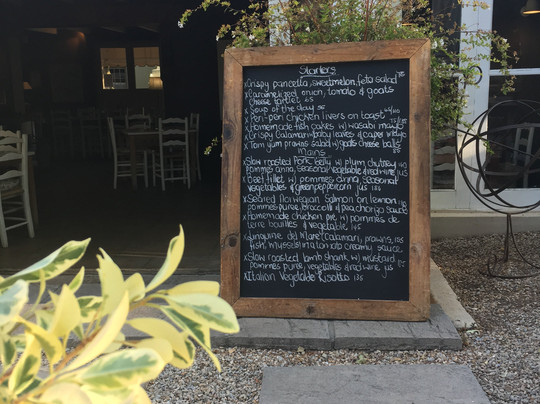 Starters
x Crispy pancetta, sweetmelon, feta salad
x Caramelized onion, tomato & goats
cheese tartlet 65
x Soup of the day
x Peri-peri chicken livers on toast
x Homemade fish cakes w/ wasabi mayo
x Crispy Calamari w/ baby leaves & caper mayo
x Tom yum prawns salad w/ goats cheese balls
Mains
x Slow roasted Pork belly w/ plum chutney
pommes anna, seasonal vegetable & red wine jus
x Beef fillet w/ pommes anna, seasonal
vegetables & green peppercorn jus
x Seared Norwegian Salmon on lemon
pommes puree, broccoli & pea chorizo sauce
x Homemade chicken pie w/ pommes de
terre bouilles & vegetable
x Linguine del Mare (calamari, prawns,
fish, mussels) in a tomato creamy sauce
x Slow roasted lamb shank w/ mustard
pommes puree, vegetables & red wine jus
x Italian Vegetable Risotto